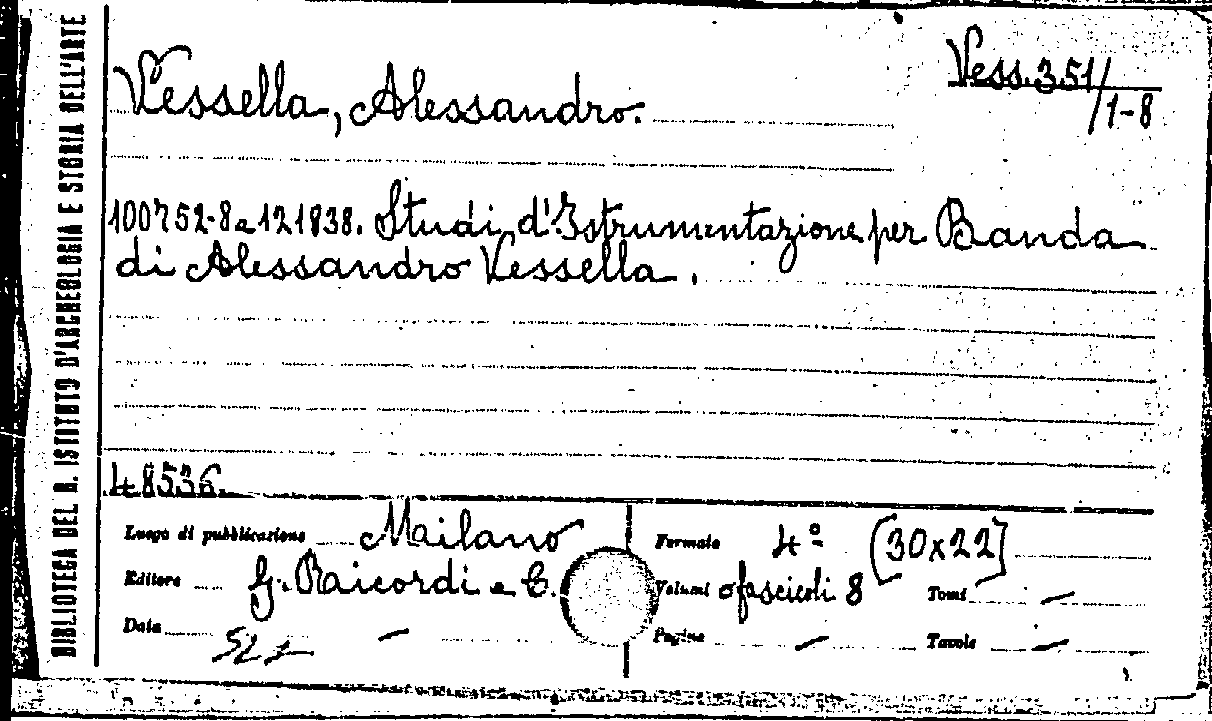 BIBLIOTECA DEL R. ISTITUTO D'ARCHEOLOGIA E STORIA DELL'ARTE
Vess. 351/1-8
Vessella, Alessandro.
100752-8 e 121838. Studi d'Istrumentazione per Banda
di Alessandro Vessella.
48536
Luogo di pubblicazione Mailano
Formato 4º (30x22)
Editore G. Raicordi e C.
Volumi o fascicoli 8 Tomi —
Data —
Pagine — Tavole —